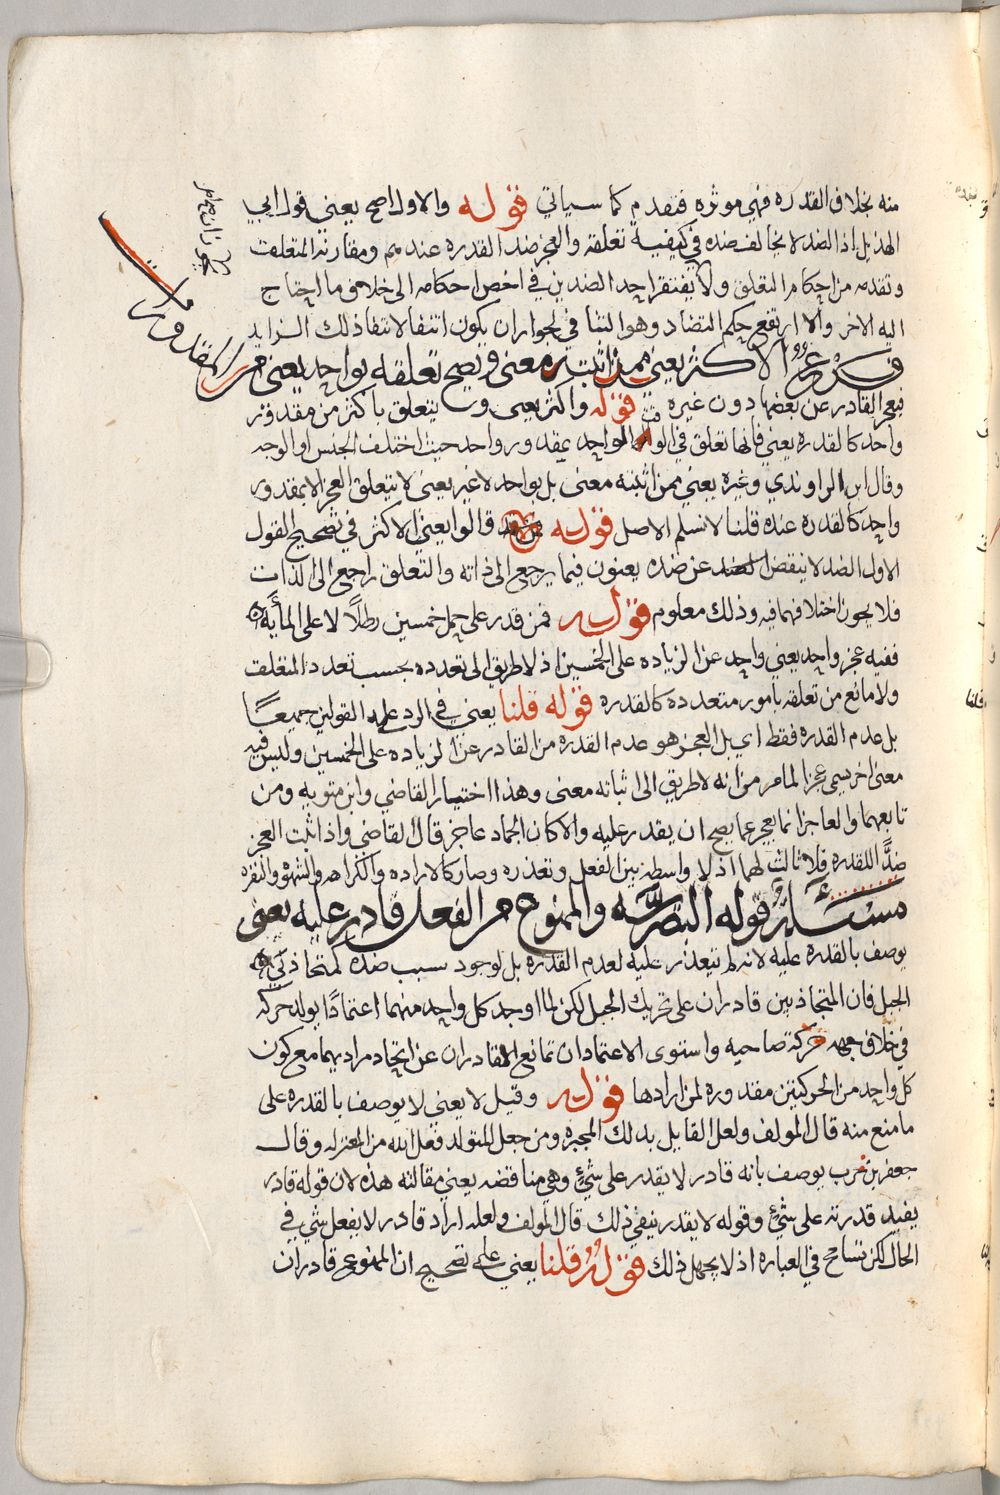 منه بخلاف القدره فهي موثره فتقدم كما سياتي قوله والاول اصح يعني قول ابي
الهذيل اذ الضد لا يخالف ضده في كيفية تعلقه والعجز ضد القدره عندهم ومقارنه المتعلق
وتقدمه من احكام التعلق ولا يفتقر احد الضدين في اخص احكامه الى خلاف ما احتاج
اليه الاخر والا ارتفع حكم التضاد وهو التنافي لجواز ان يكون انتفا لانتفا ذلك الزايد
فرع الاكثر يعني ممن اثبته معنى ويصح تعلقه بواحد يعني من المقدورات
فيعجز القادر عن بعضها دون غيره قوله واكثر يعني ويتعلق باكثر من مقدور
واحد كالقدره يعني فانها تعلق في الواحد بمقدور واحد حيث اختلف الجنس او الوجه
وقال ابن الراوندي وغيره يعني ممن اثبته معنى بل بواحد لا غير يعني لا يتعلق العجز الا بمقدور
واحد كالقدره عنده قلنا لا نسلم الاصل قوله قالوا يعني الاكثر في تصحيح القول
الاول الضد لا ينقض عن ضده يعنون فيما يرجع الى ذاته والتعلق راجع الى الذات
فلا يجوز اختلافهما فيه وذلك معلوم قوله فمن قدر على حمل خمسين رطلًا لا على المأية
ففيه عجز واحد يعني واحد عن الزياده على الخمسين اذ لا طريق الى تعدده بحسب تعدد المتعلق
ولا مانع من تعلقه بامور متعدده كالقدره قوله قلنا يعني في الرد على القولين جميعًا
بل عدم القدره فقط اي بل العجز هو عدم القدره من القادر عن الزياده على الخمسين وليس فيه
معنى اخر يسمى عجزا لما مر من انه لا طريق الى اثباته معنى وهذا اختيار القاضي وابن متويه ومن
تابعهما والعاجز انما يعجز عما يصح ان يقدر عليه والا كان الجماد عاجز قال القاضي واذا ثبت العجز
ضدًّا للقدره فلا ثالث لهما اذ لا واسطه بين الفعل وتعذره وصار كالاراده والكراهه والشهوه والنفره
مسئلة قوله البصريه والممنوع من الفعل قادر عليه يعني
يوصف بالقدره عليه لانه لم يتعذر عليه لعدم القدره بل لوجود سبب ضده كمتجاذبي
الحبل فان المتجاذبين قادران على تحريك الحبل لكن لما اوجد كل واحد منهما اعتمادًا يولد حركه
في خلاف جهه حركة صاحبه واستوى الاعتمادان تمانع القادران عن ايجاد مراديهما مع كون
كل واحد من الحركتين مقدوره لمن ارادها قوله وقيل لا يعني لا يوصف بالقدره على
ما منع منه قال المولف ولعل القايل بذلك المجبره ومن جعل المتولد فعل الله من المعتزله وقال
جعفر بن حرب يوصف بانه قادر لا يقدر على شيءٍ وهي مناقضه يعني مقالته هذه لان قوله قادر
يفيد قدرته على شيءٍ وقوله لا يقدر ينفي ذلك قال المولف ولعله اراد قادر لا يفعل شي في
الحال لكن تسامح في العباره اذ لا يجهل ذلك قوله قلنا يعني على تصحيح ان الممنوع قادر ان